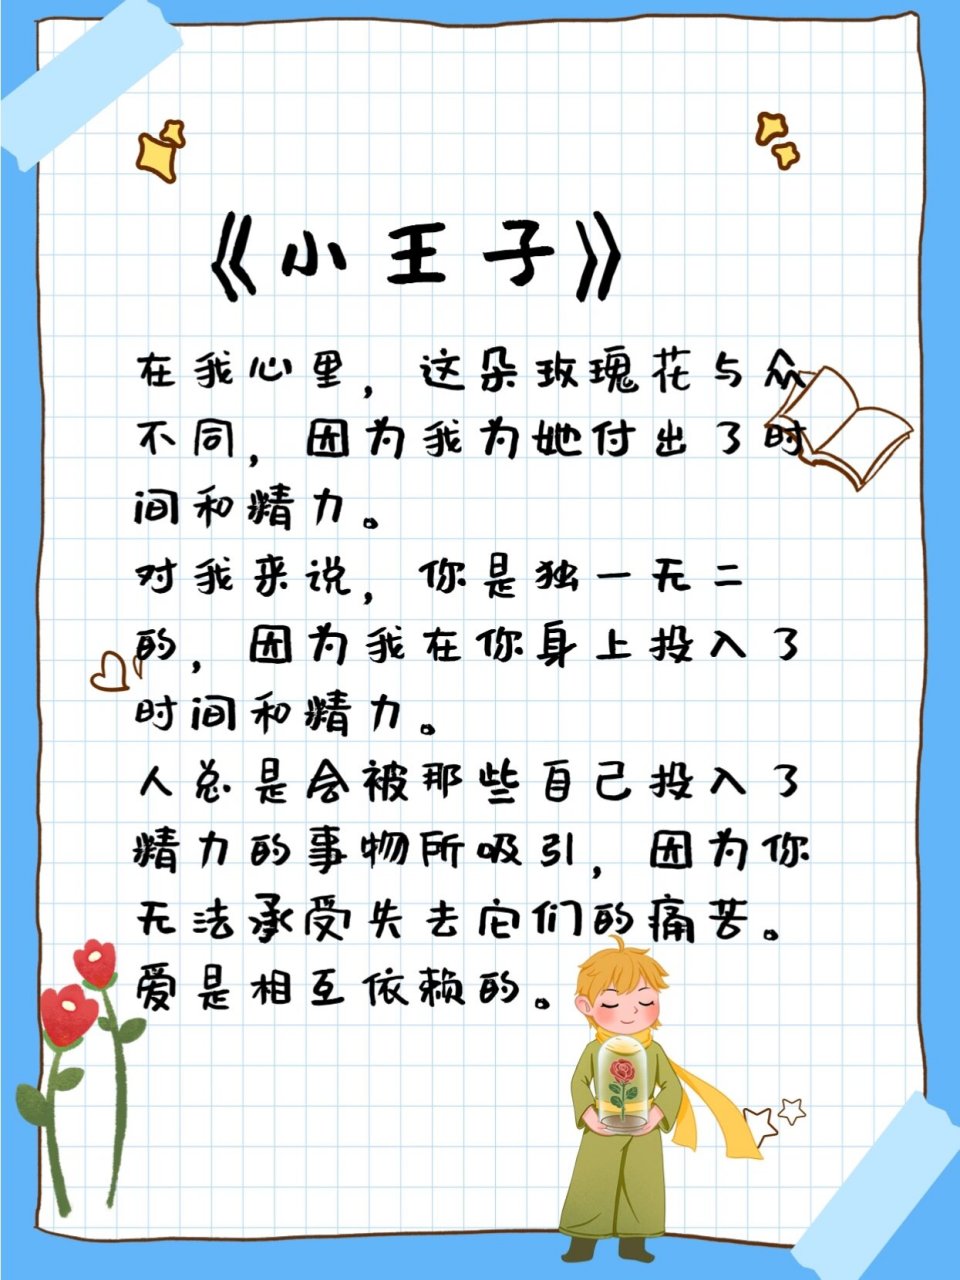 《小王子》
在我心里，这朵玫瑰花与众
不同，因为我为她付出了时
间和精力。
对我来说，你是独一无二
的，因为我在你身上投入了
时间和精力。
人总是会被那些自己投入了
精力的事物所吸引，因为你
无法承受失去它们的痛苦。
爱是相互依赖的。